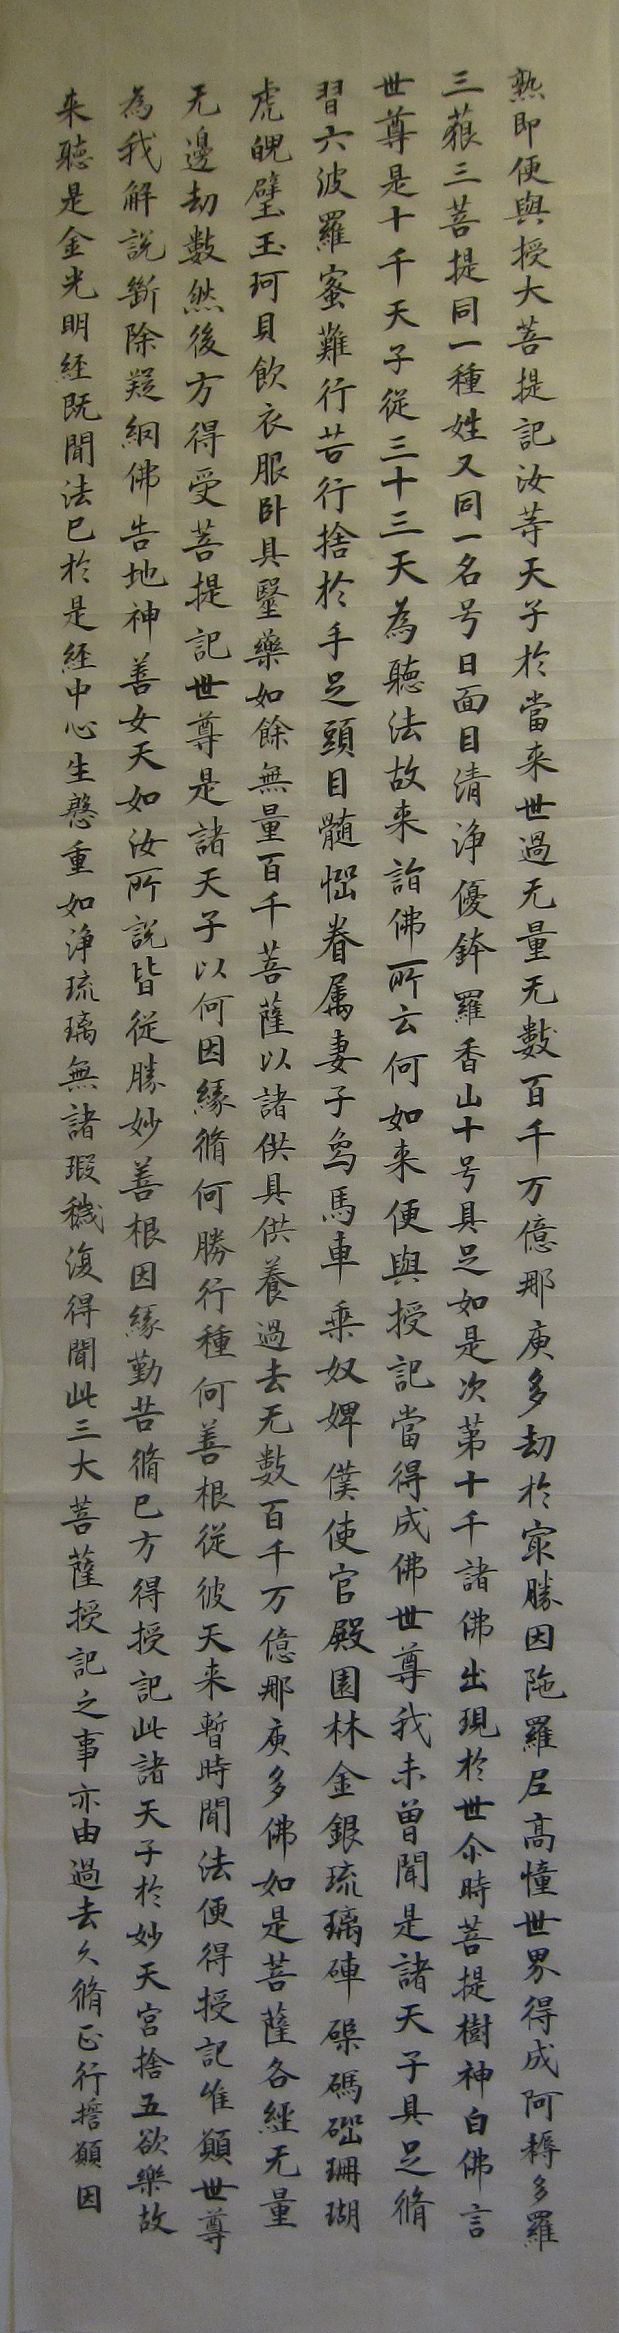 熟即便與授大菩提記汝等天子於當来世過无量无數百千万億那庾多劫於㝡勝因陁羅尼高幢世界得成阿耨多羅
三藐三菩提同一種姓又同一名号曰面目清浄優鉢羅香山十号具足如是次第十千諸佛出現於世尒時菩提樹神白佛言
世尊是十千天子從三十三天為聽法故来詣佛所云何如来便與授記當得成佛世尊我未曾聞是諸天子具足脩
習六波羅蜜難行苦行捨於手足頭目髓惱眷属妻子象馬車乗奴婢僕使宫殿園林金銀琉璃硨磲碼碯珊瑚
虎魄璧玉珂貝飲衣服卧具毉藥如餘無量百千菩薩以諸供具供養過去无數百千万億那庾多佛如是菩薩各經无量
无邊劫數然後方得受菩提記世尊是諸天子以何因緣脩何勝行種何善根從彼天来暫時聞法便得授記惟願世尊
為我解說斷除疑網佛告地神善女天如汝所說皆從勝妙善根因緣勤苦脩已方得授記此諸天子於妙天宫捨五欲樂故
来聽是金光明經既聞法已於是經中心生慇重如浄琉璃無諸瑕穢復得聞此三大菩薩授記之事亦由過去久脩正行誓願因